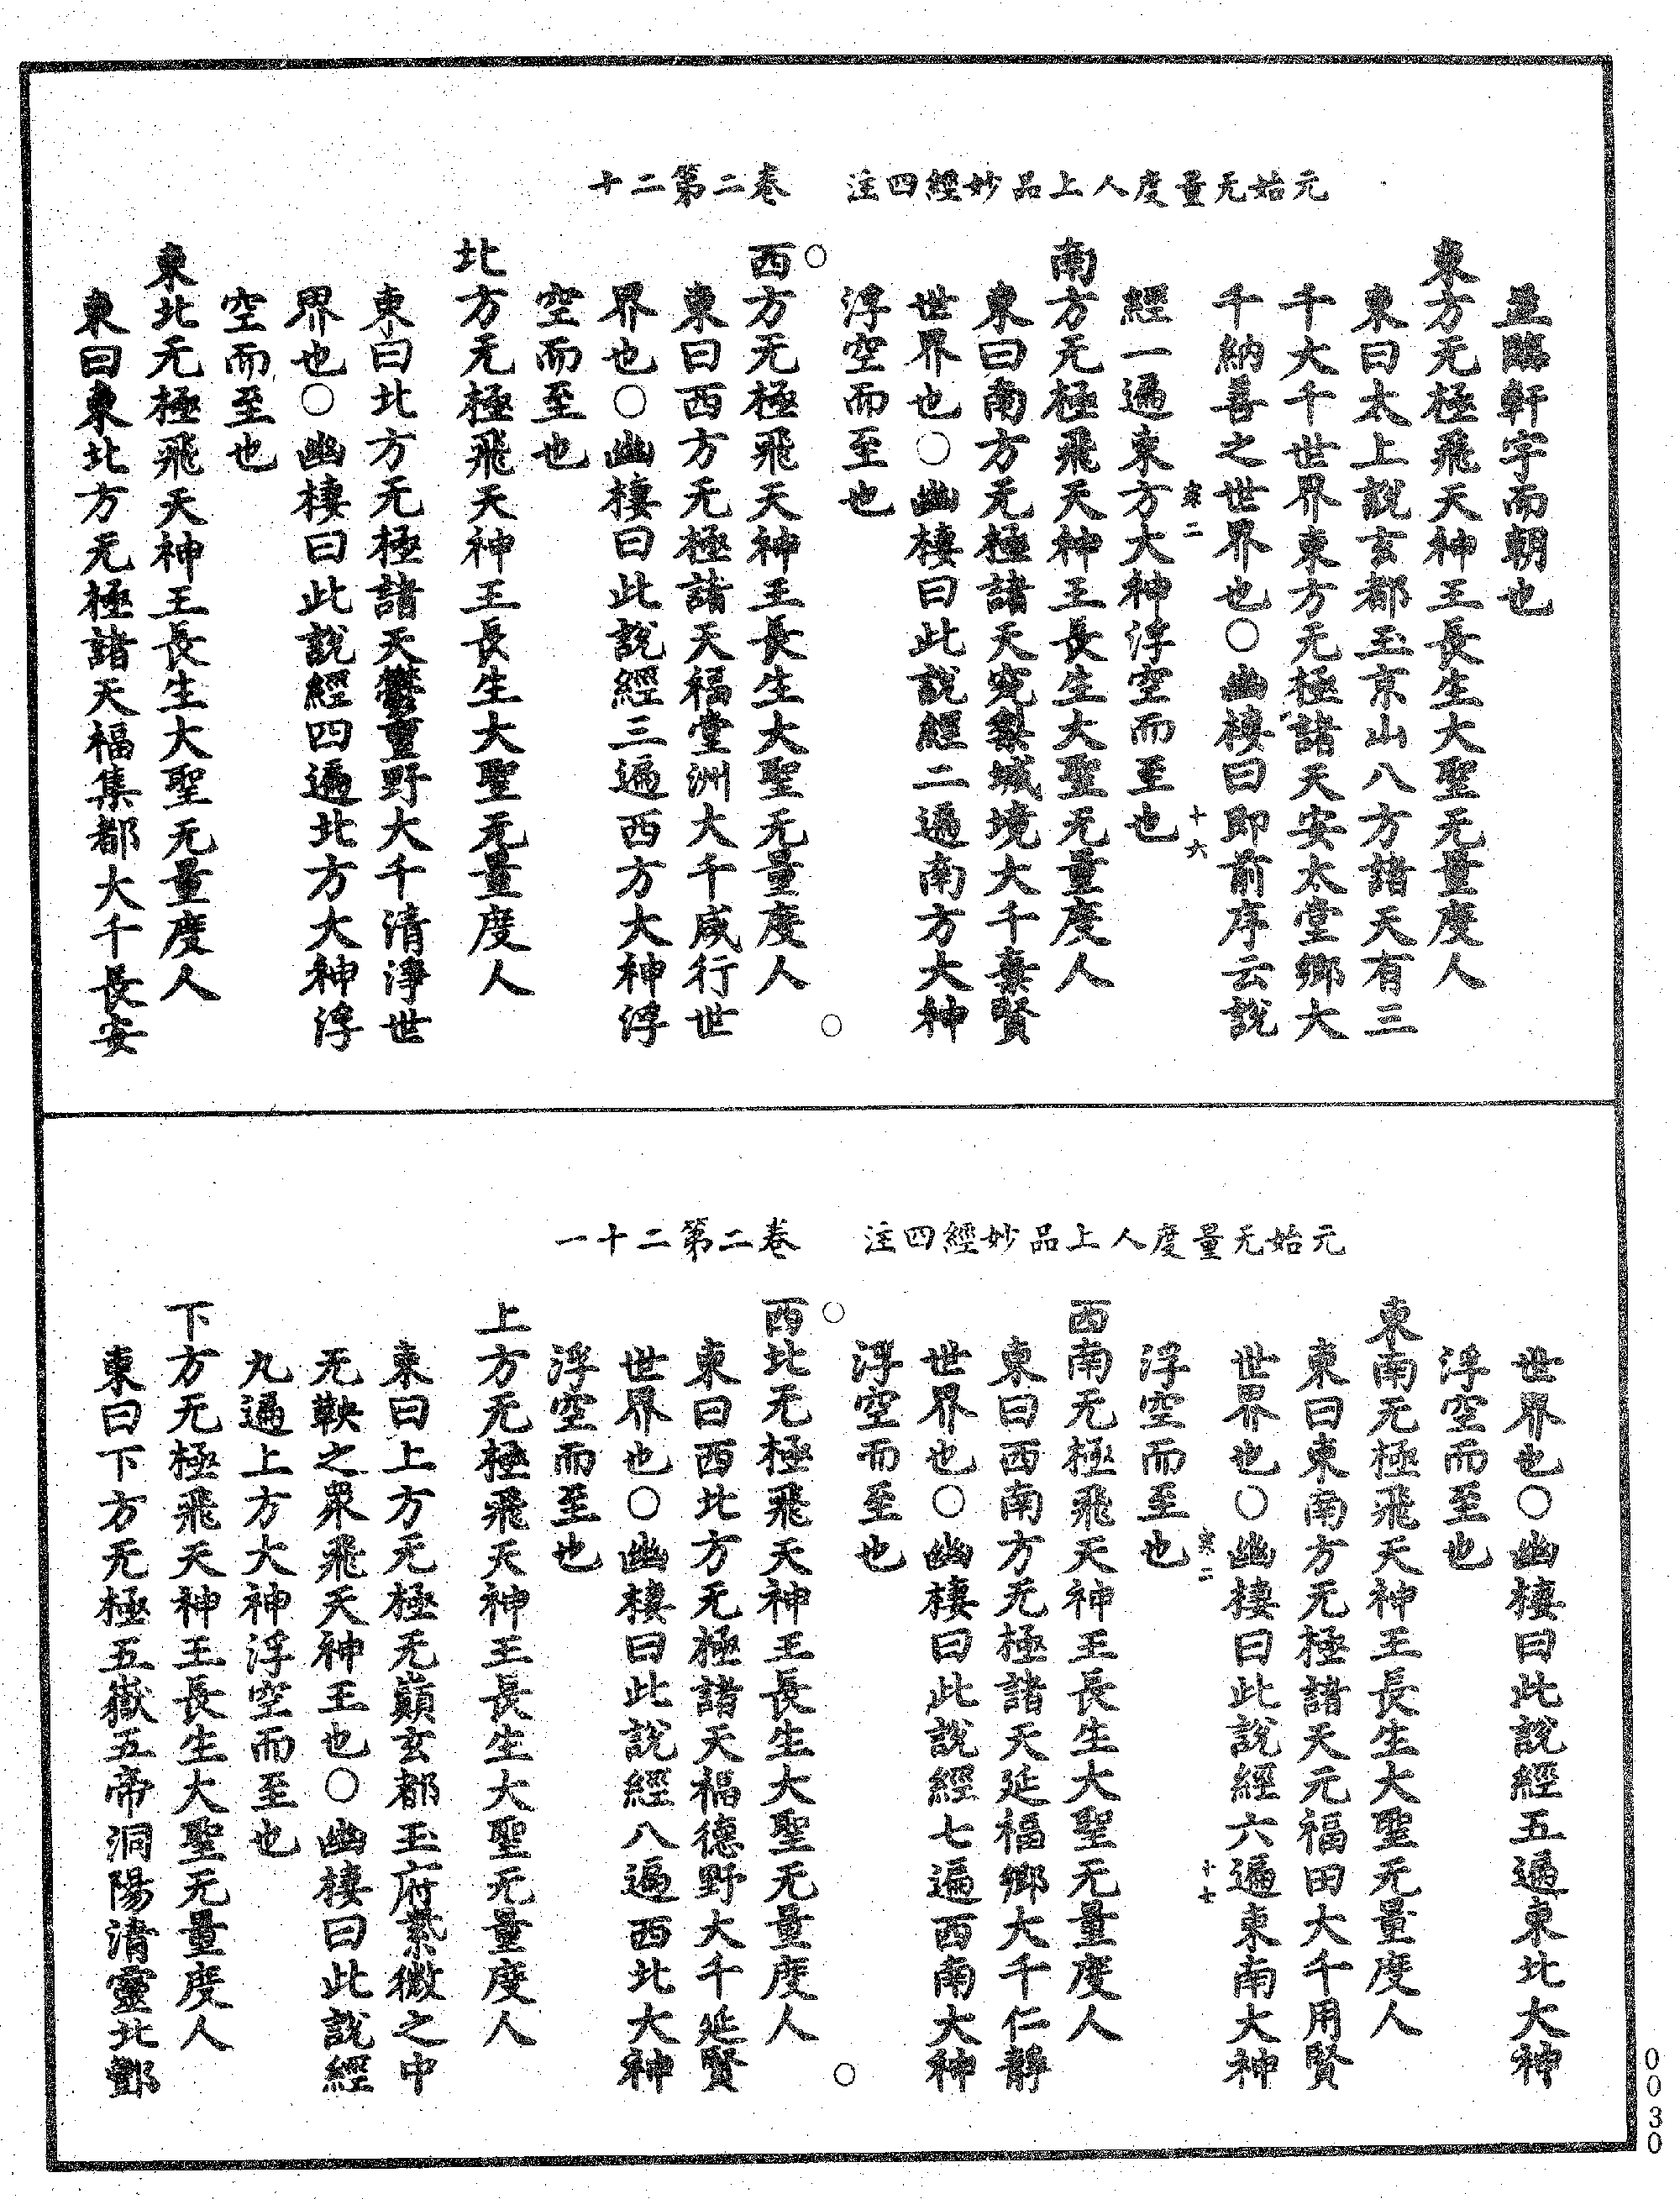 元始无量度人上品妙經四注 卷二第二十
並臨軒宇而朝也
東方无極飛天神王長生大聖无量度人
東曰太上說玄都玉京山八方諸天有三
千大千世界東方无極諸天安太堂鄉大
千納善之世界也○幽棲曰即前序云說
經一遍東方大神浮空而至也
南方无極飛天神王長生大聖无量度人
東曰南方无極諸天宛黎城境大千棄賢
世界也○幽棲曰此說經二遍南方大神
浮空而至也
西方无極飛天神王長生大聖无量度人
東曰西方无極諸天福堂洲大千咸行世
界也○幽棲曰此說經三遍西方大神浮
空而至也
北方无極飛天神王長生大聖无量度人
東曰北方无極諸天鬱單野大千清淨世
界也○幽棲曰此說經四遍北方大神浮
空而至也
東北无極飛天神王長生大聖无量度人
東曰東北方无極諸天福集都大千長安
元始无量度人上品妙經四注 卷二第二十一
世界也○幽棲曰此說經五遍東北大神
浮空而至也
東南无極飛天神王長生大聖无量度人
東曰東南方无極諸天元福田大千用賢
世界也○幽棲曰此說經六遍東南大神
浮空而至也
西南无極飛天神王長生大聖无量度人
東曰西南方无極諸天延福鄉大千仁靜
世界也○幽棲曰此說經七遍西南大神
浮空而至也
西北无極飛天神王長生大聖无量度人
東曰西北方无極諸天福德野大千延賢
世界也○幽棲曰此說經八遍西北大神
浮空而至也
上方无極飛天神王長生大聖无量度人
東曰上方无極无巔玄都玉府紫微之中
无鞅之眾飛天神王也○幽棲曰此說經
九遍上方大神浮空而至也
下方无極飛天神王長生大聖无量度人
東曰下方无極五嶽五帝洞陽清靈北酆
十六
十七
0030